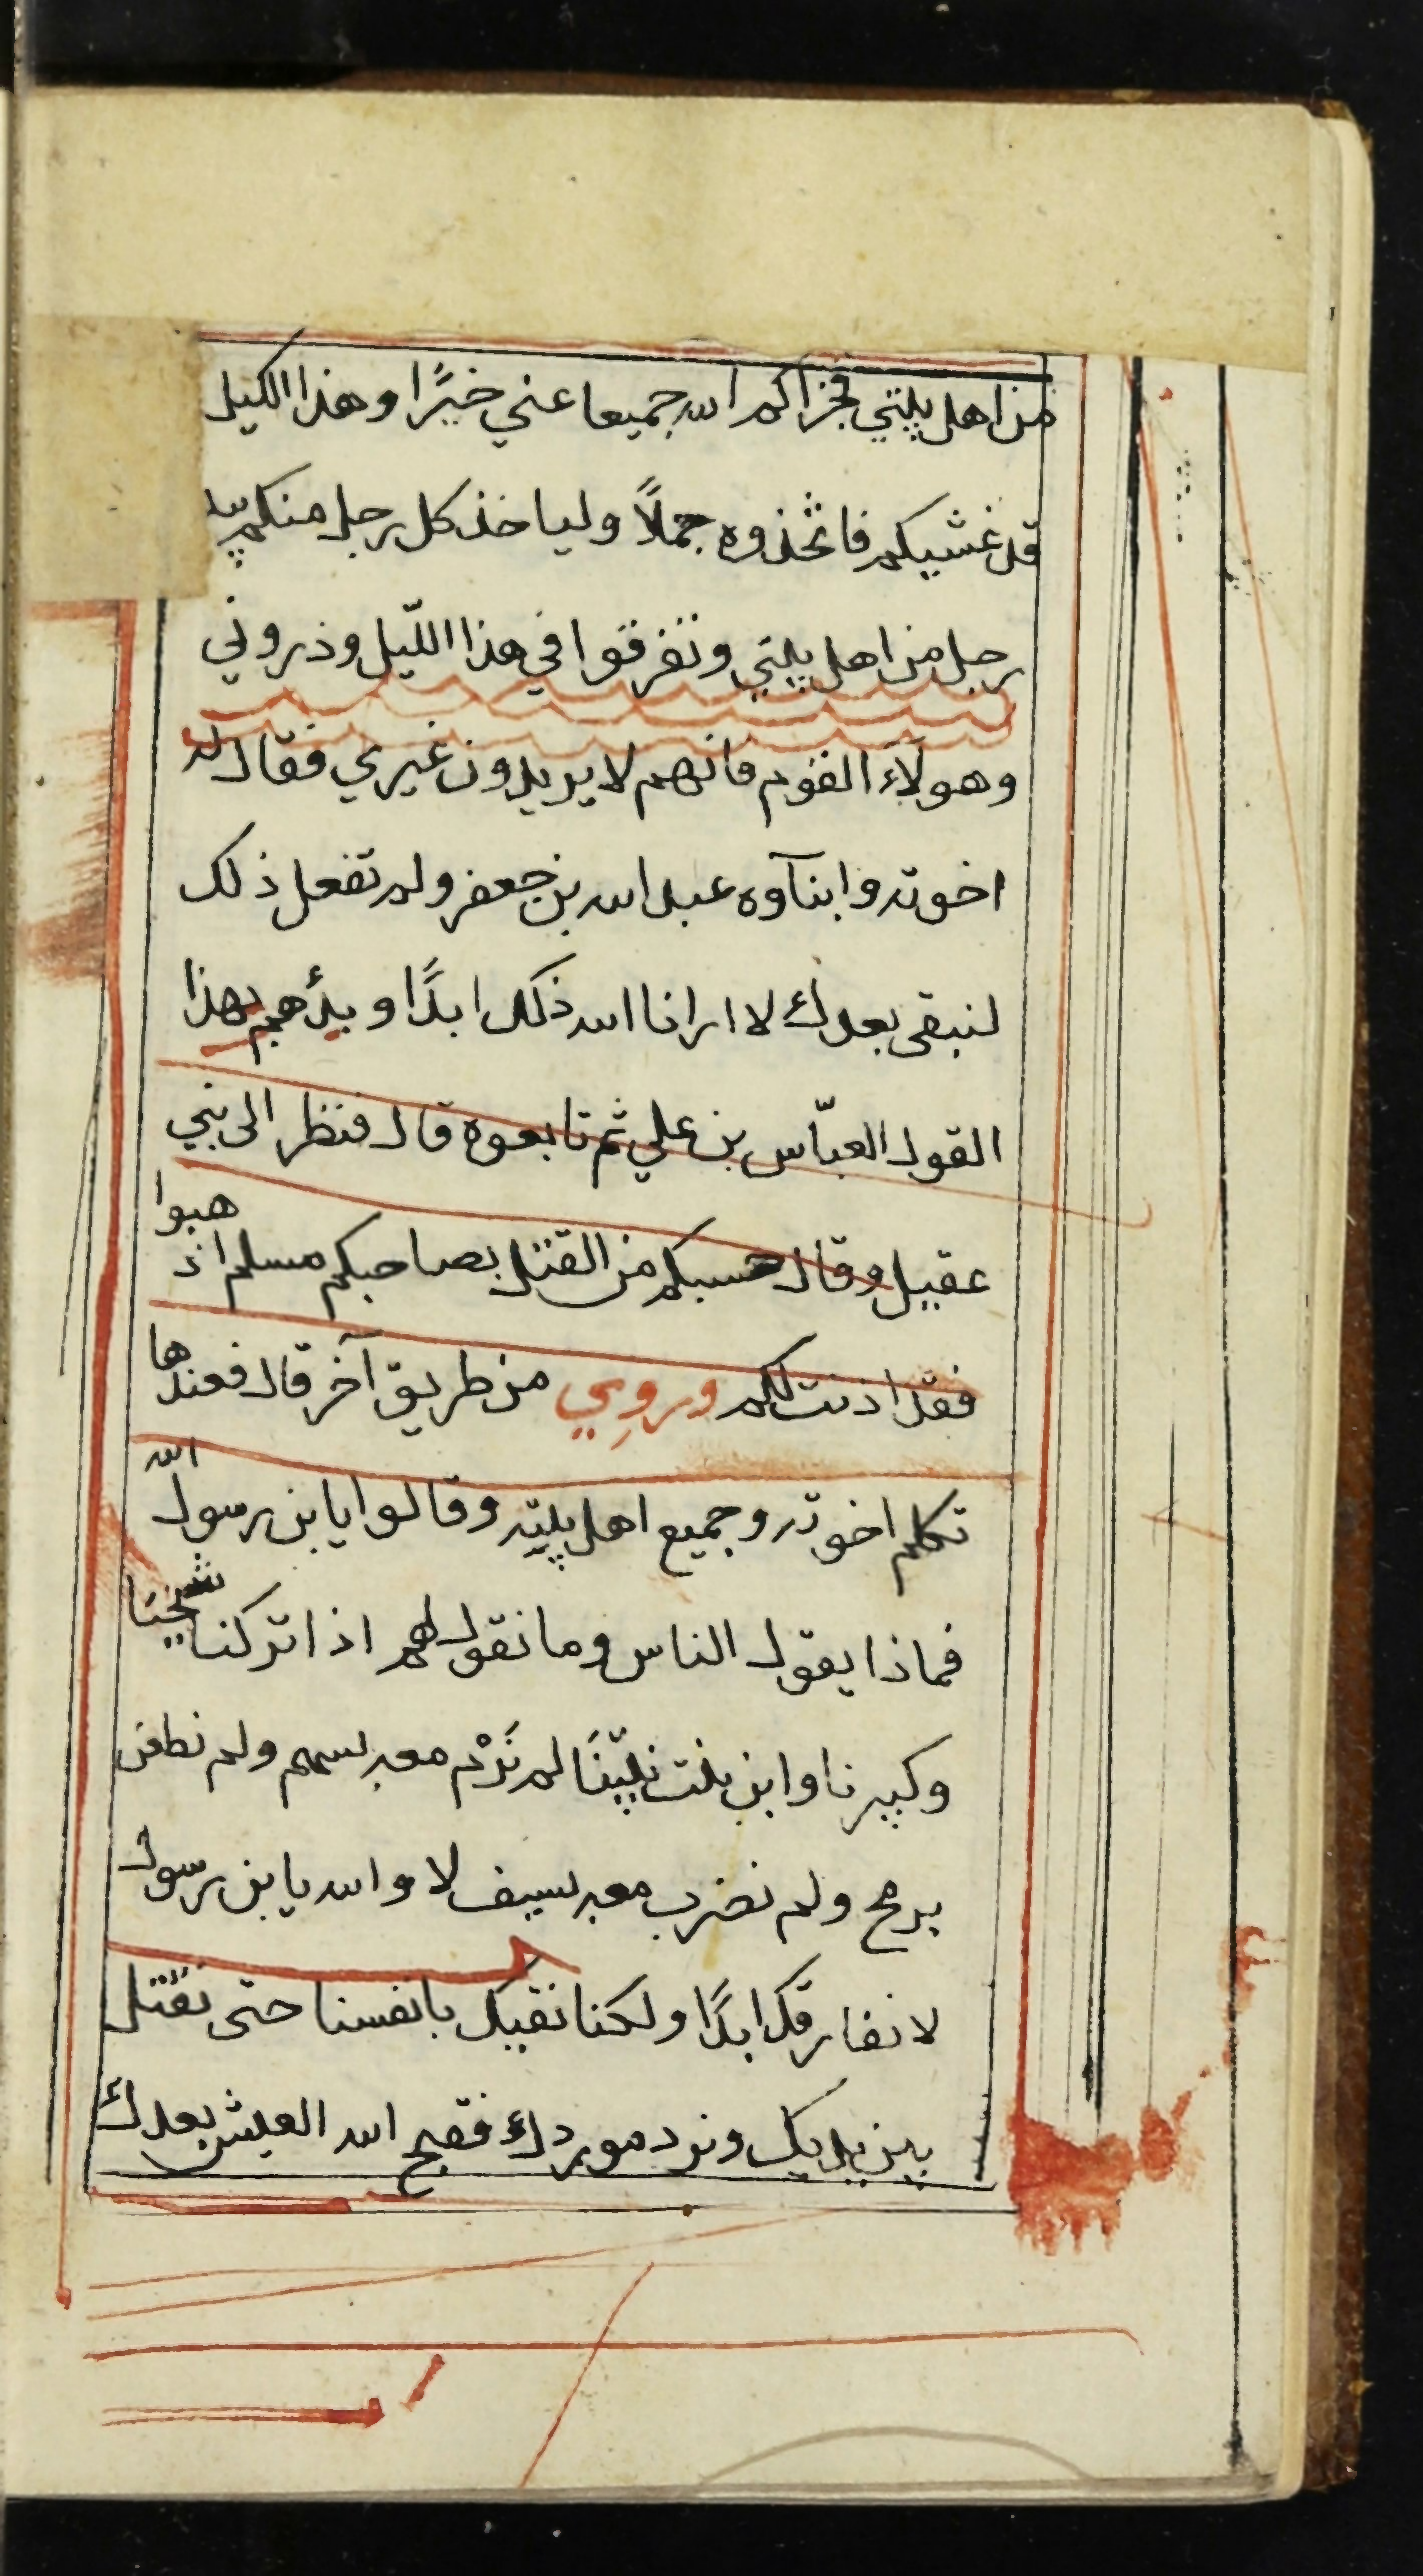 من اهل بيتي فجزاكم الله جميعا عني خيرًا وهذا الليل
قد غشيكم فاتخذوه جملاً ولياخذ كل رجل منكم بيد
رجل من اهل بيتي وتفرقوا في هذا اللّيل وذروني
وهولآء القوم فانهم لا يريدون غيري فقال له
اخوته وابنآوه عبد الله بن جعفر ولم تفعل ذلك
لنبقى بعدك لا ارانا الله ذلك ابدًا وبدأهم بهذا
القول العبّاس بن علي ثم تابعوه قال فنظر الى بني
عقيل وقال حسبكم من القتل بصاحبكم مسلم اذهبوا
فقد اذنت لكم وروِي من طريق آخر قال فعندها
تكلم اخوته وجميع اهل بيته وقالوا يا بن رسول الله
فماذا يقول الناس وما نقول لهم اذا تركنا شيخنا
وكبيرنا وابن بنت نبيّنَا لم نَرْم معه بسهم ولم نطعن
برمح ولم نضرب معه بسيف لا والله يا بن رسول
لا نفارقك ابدًا ولكنا نقيك بانفسنا حتى نقتل
بين يديك ونرد موردك فقبح الله العيش بعدك